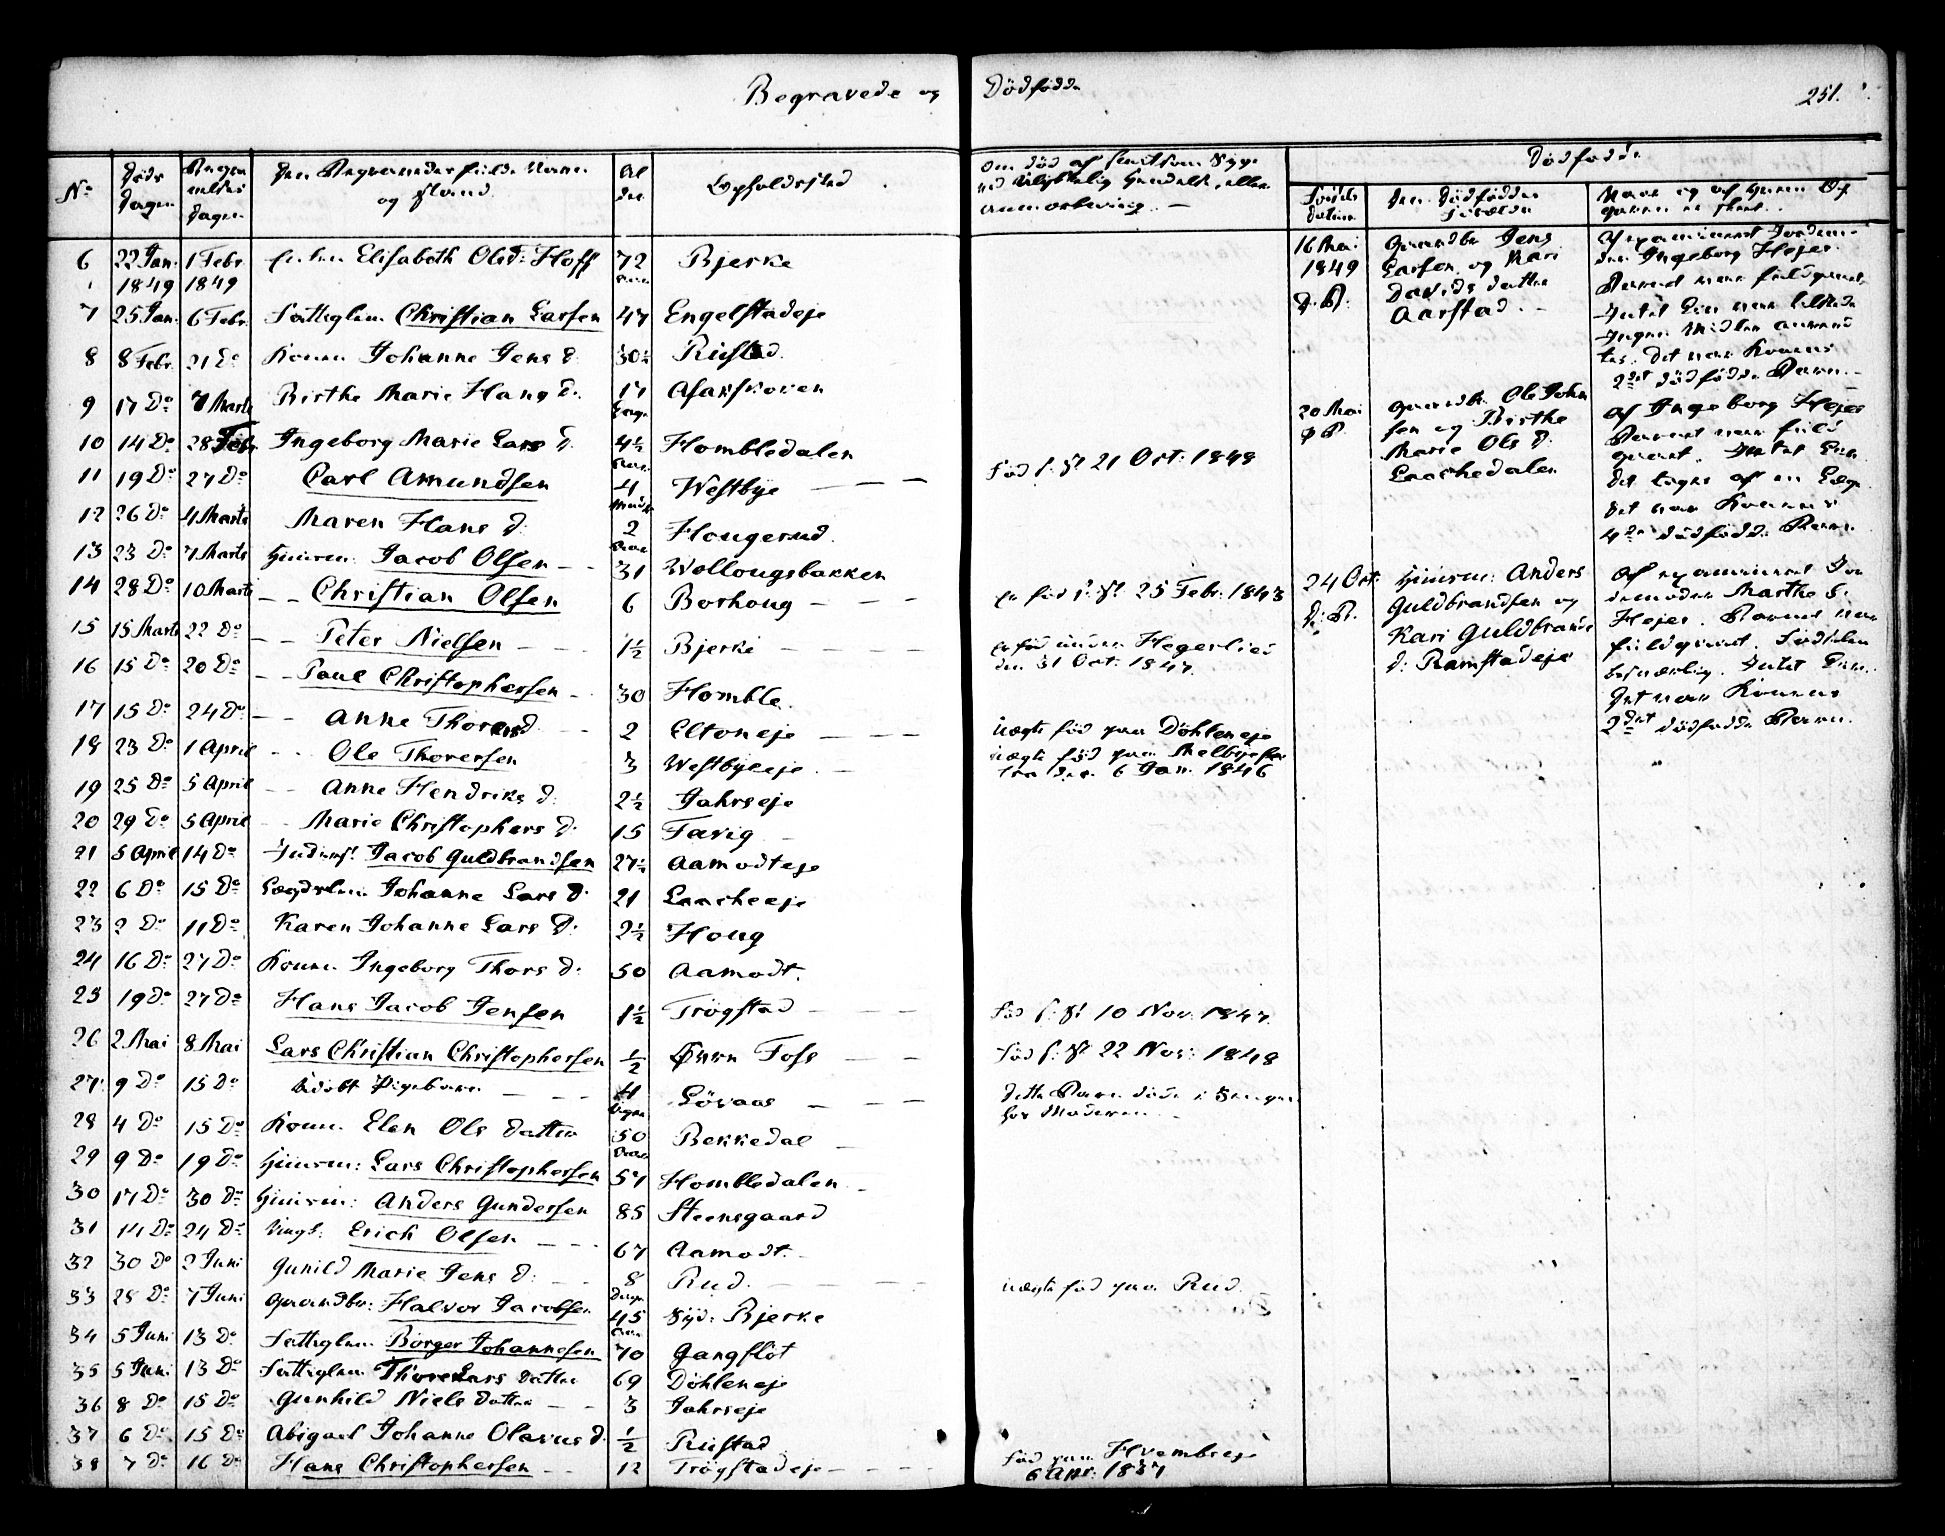 Begravede og Dödfödde
251.
No Döds Dagen Begravelses Dagen Den Begravedes fulde Navn og Stand. Alder Opholdssted
6 22 Jan. 1849 1 Febr. 1849 Elisabeth Olsd: Hoff 72 Bjerke
7 25 Jan. 6 Febr. Fattiglem Christian Larsen 47 Engelstadeje
8 8 Febr. 21 Do Konen Johanne Jens D. 30½ Rustad.
9 17 Do 7 Marts Birthe Marie Hans D. 17 Dage Asakskoven
10 14 Do 28 Feb. Ingeborg Marie Lars D. 4½ Hombledalen
11 19 Do 27 Do Carl Amundsen 4 Westbye
12 26 Do 4 Marts Maren Hans D. 2 Hougerud.
13 23 Do 7 Marts Huusm: Jacob Olsen 31 Wollougsbakken
14 28 Do 10 Marts Christian Olsen 6 Borhoug
15 15 Marts 22 Do Peter Nielsen 1½ Bjerke
16 15 Do 20 Do Paul Christophersen 30 Homble.
17 15 Do 24 Do Anne Thoresd. 2 Eltoneje
18 23 Do 1 April Ole Thoresen 3 Westbyeeje
19 25 Do 5 April Anne Hendriks D. 2½ Jahrseje
20 29 Do 5 April Marie Christophers D. 15 Farig
21 5 April 14 Do Inders: Jacob Guldbrandsen 27½ Aamodteje
22 6 Do 15 Do Lægdslem Johanne Lars D. 21 Laacheeje
23 2 Do 11 Do Karen Johanne Lars D. 2½ Houg
24 16 Do 27 Do Konen Ingeborg Thors D. 50 Aamodt.
25 19 Do 27 Do Hans Jacob Jensen 1½ Trögstad
26 2 Mai 8 Mai Lars Christian Christophersen ½ Foss
27 9 Do 15 Do Udøbt Pigebarn Lövaas
28 4 Do 15 Do Konen Elen Ols Datter 50 Bekkedal
29 9 Do 19 Do Huusm: Lars Christophersen 57 Hombledalen
30 17 Do 30 Do Huusm: Anders Gundersen 85 Steensgaard
31 14 Do 24 Do Ungk. Erich Olsen 67 Aamodt.
32 30 Do 2 Juni Gunild Marie Jens D. 8 Dage Rud.
33 28 Do 7 Juni Gaardbr: Halvor Jacobsen 45 Syd: Bjerke
34 5 Juni 13 Do Fattiglem Börger Johannesen 70 Gangflöt
35 5 Juni 13 Do Fattiglem Thore Lars Datter 69 Döhleneje
36 8 Do 15 Do Gunhild Niels Datter 3 Jahrseje
37 6 Do 15 Do Abigael Johanne Olavus D. ½ Rustad
38 7 Do 16 Do Hans Christophersen 12 Trögstadeje
Om död af smitsom Syge
ved Ulykkelig Hændelse, eller
Anmærkning.
Föd 21 Oct: 1848
er föd 25 Febr. 1843
er föd under Hegerlies
den 31 Oct. 1847.
uægte föd paa Döhleneje
uægte föd paa Melbyesæ
tra den 6 Jan. 1846
Föd 10 Nov. 1847.
Föd 22 Nov: 1848
dette Barn döde i Sengen
hos Moderen
uægte föd paa Rud.
Föd paa Hvambseje
6 Apr: 1837
Dödfödde
Födsels Datum
Den Dödföddes Forældre
Naar og af hvem Op
gaven er skeet.
16 Mai 1849
Gaardbr Jens
Larsen og Kari
Davids datter
Aarstad.
af examineret Jordem-
der Ingeborg Hejer.
Barnet var fuldbaaret
Intet Liv var tilstede
Ingen Midler anvend
tes. Det var Konens
2det dödfödde Barn.
20 Mai
Gaardbr. Ole John
sen og Birthe
Marie Ols D.
Laachedalen
af Ingeborg Hejer
Barnet var fuld
det var Konens
4de dödfödde Barn.
24 Oct.
Huusm: Anders
Guldbrandsen og
Kari Guldbrands
d: Ramstadeje
af examineret Jor
demoder Marthe
Hejer. Barnet var
Födselen
besværlig. Intet
Det var Konens
2det dödfödde Barn.